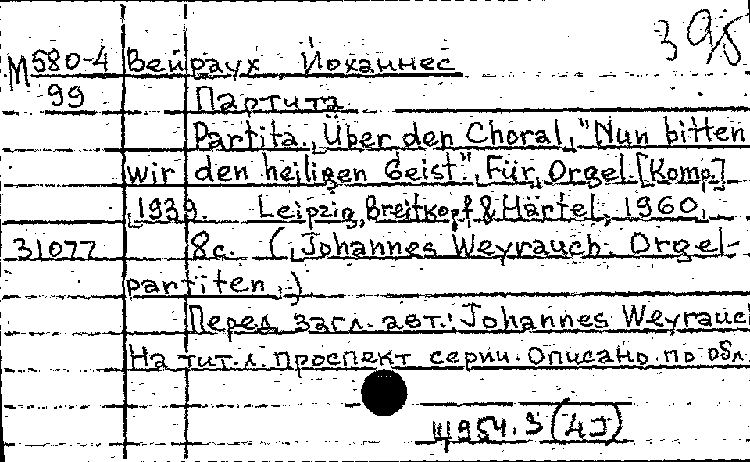 395
М 580-4 Вейраух, Йоханнес
99 Партита
Partita. Über den Choral "Nun bitten
wir den heiligen Geist". Für Orgel [Komp.]
1939. Leipzig, Breitkopf & Härtel, 1960.
31077 8с. (Johannes Weyrauch. Orgel-
partiten.)
Перед загл. авт.: Johannes Weyrauc
На тит. л. проспект серии. Описано по обл.
Щ954.3(4J)